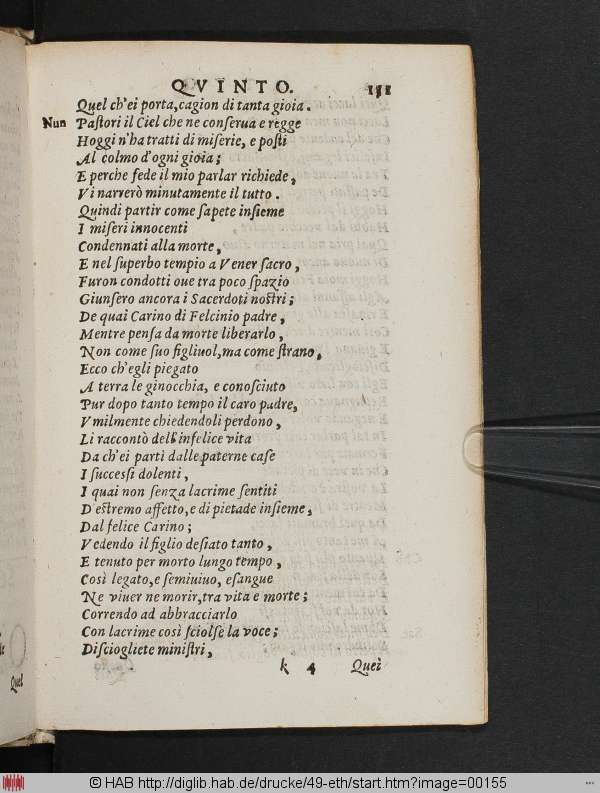 QVINTO. 151
Quel ch'ei porta, cagion di tanta gioia.
Nun Paſtori il Ciel che ne conſerua e regge
Hoggi n'ha tratti di miſerie, e poſti
Al colmo d'ogni gioia;
E perche fede il mio parlar richiede,
Vi narrerò minutamente il tutto.
Quindi partir come ſapete inſieme
I miſeri innocenti
Condennati alla morte,
E nel ſuperbo tempio a Vener ſacro,
Furon condotti oue tra poco ſpazio
Giunſero ancora i Sacerdoti noſtri;
De quai Carino di Felcinio padre,
Mentre penſa da morte liberarlo,
Non come ſuo figliuol, ma come ſtrano,
Ecco ch'egli piegato
A terra le ginocchia, e conoſciuto
Pur dopo tanto tempo il caro padre,
Vmilmente chiedendoli perdono,
Li raccontò dell'infelice vita
Da ch'ei partì dalle paterne caſe
I ſucceſſi dolenti,
I quai non ſenza lacrime ſentiti
D'eſtremo affetto, e di pietade inſieme,
Dal felice Carino;
Vedendo il figlio deſiato tanto,
E tenuto per morto lungo tempo,
Così legato, e ſemiuiuo, eſangue
Ne viuer ne morir, tra vita e morte;
Correndo ad abbracciarlo
Con lacrime così ſciolſe la voce;
Diſciogliete miniſtri,
k 4 Quei
Quel
© HAB http://diglib.hab.de/drucke/49-eth/start.htm?image=00155